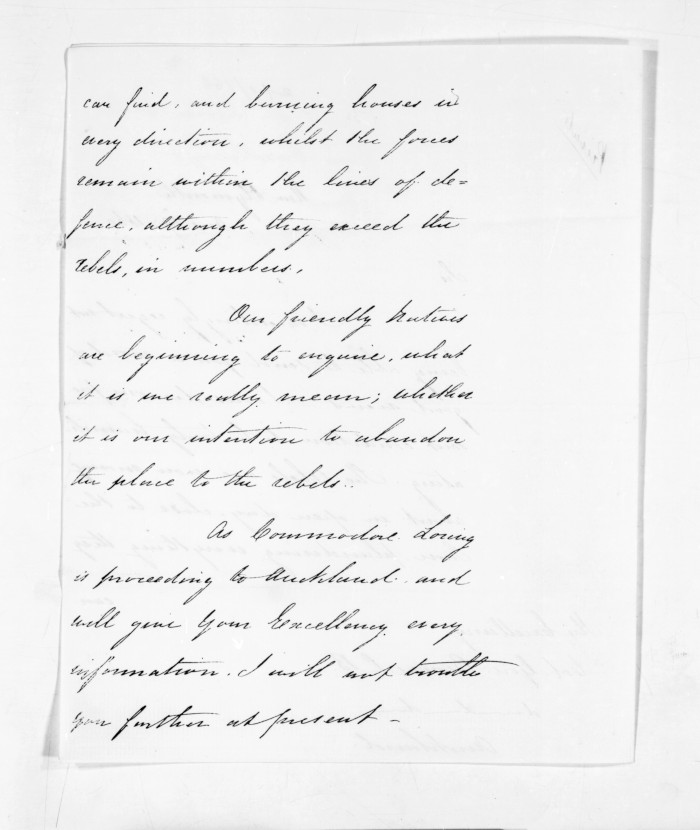 can find, and burning houses in
every direction, whilst the forces
remain within the lines of de=
fence, although they exceed the
rebels, in numbers.
Our friendly Natives
are beginning to enquire, what
it is we really mean; whether
it is our intention to abandon
the place to the rebels..
As Commodore Loring
is proceeding to Auckland. and
will give Your Excellency every
information. I will not trouble
you further at present –